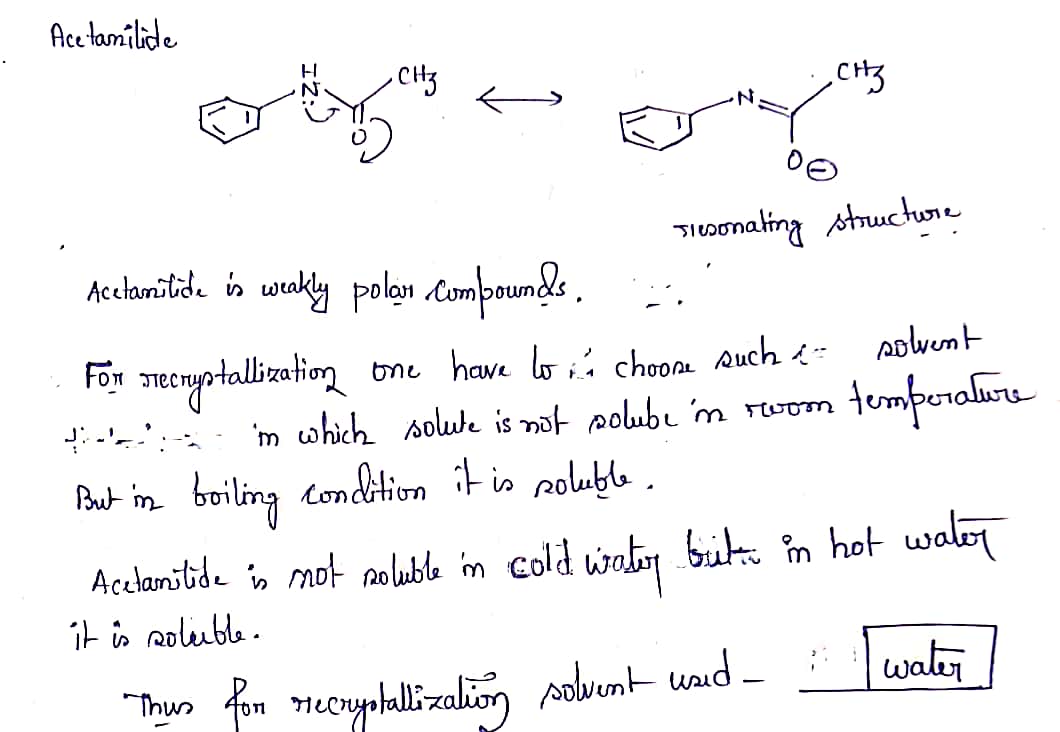 Acetanilide
H
N CH3 ⟷ N CH3
O O⊖
resonating structure
Acetanilide is weakly polar compounds.
For recrystallization one have to choose such solvent
in which solute is not solube in room temperature
But in boiling condition it is soluble.
Acetanilide is not soluble in cold water but in hot water
it is soluble.
Thus for recrystallization solvent used - water